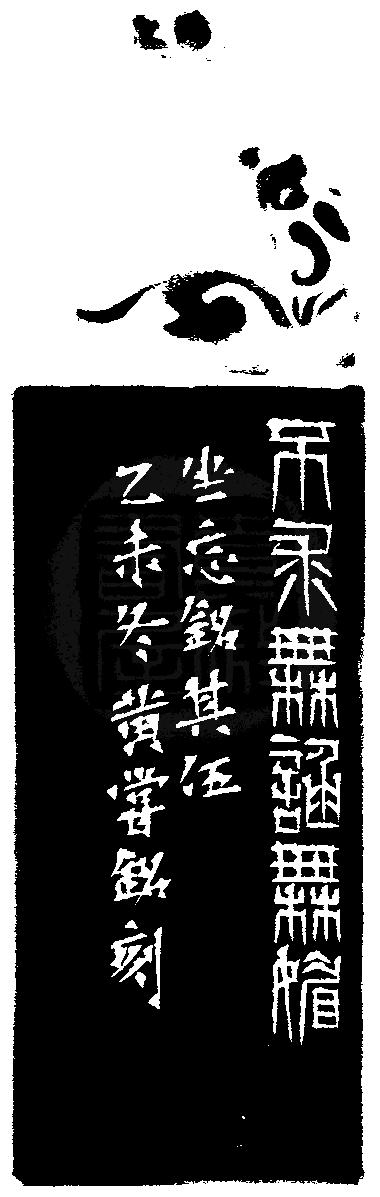 不求無諂無媚
坐忘銘其伍
乙未冬黃嘗銘刻